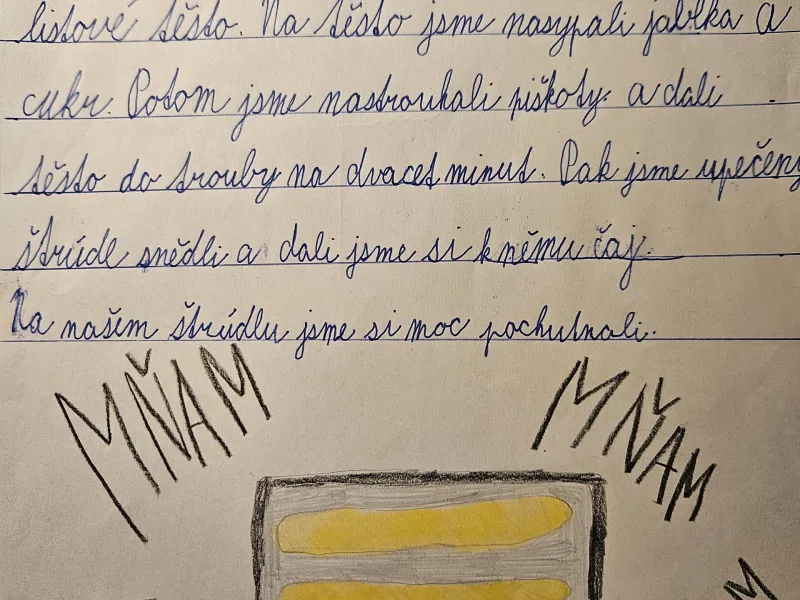 listové těsto. Na těsto jsme nasypali jablka a
cukr. Potom jsme nastrouhali piškoty. a dali
těsto do trouby na dvacet minut. Pak jsme upečený
štrúdl snědli a dali jsme si k němu čaj.
Na našem štrúdlu jsme si moc pochutnali.
MŇAM
MŇAM